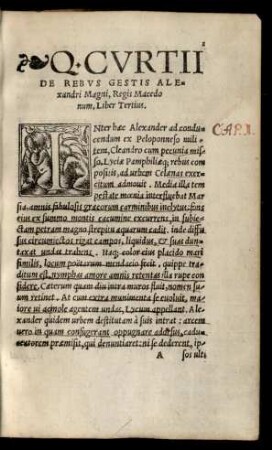 1
Q. CVRTII
DE REBVS GESTIS ALE-
xandri Magni, Regis Macedo
num, Liber Tertius.
CAP. I.
INter hæc Alexander ad condu-
cendum ex Peloponneso mili
tem, Cleandro cum pecunia mis-
so, Lyciæ Pamphiliæq; rebus com
positis, ad urbem Celænas exer-
citum admouit. Media illa tem
pestate mœnia interfluebat Mar
sia amnis fabulosis græcorum carminibus inclytus. fons
eius ex summo montis cacumine excurrens, in subie-
ctam petram magno strepitu aquarum cadit. inde diffu
sus circumiectos rigat campos, liquidus, & suas dun-
taxat undas trahens. Itaq; color eius placido mari
similis, locum poëtarum mendacio fecit. quippe tra-
ditum est, nymphas amore amnis retentas illa rupe con
sidere. Cæterum quam diu intra muros fluit, nomen su
um retinet. At cum extra munimenta se euoluit, ma-
iore ui ac mole agentem undas, Lycum appellant. Ale
xander quidem urbem destitutam à suis intrat: arcem
uero in quam confugerant oppugnare adorsus, cadu
ceatorem præmisit, qui denuntiaret: ni se dederent, ip-
A sos ulti